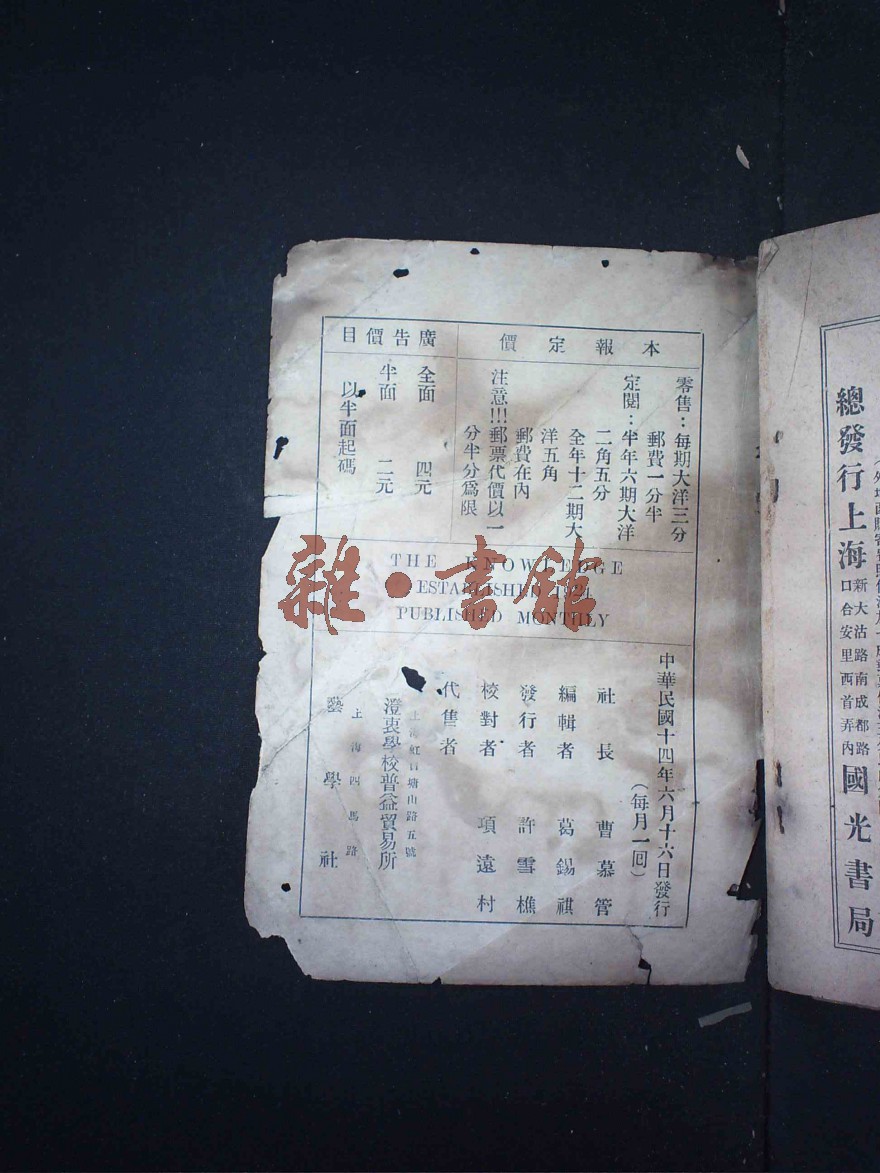 本報定價
零售：每期大洋三分
郵費一分半
定閱：半年六期大洋
二角五分
全年十二期大
洋五角
郵費在內
注意!!!郵票代價以一
分半分爲限
廣告價目
全面　四元
半面　二元
以半面起碼
THE KNOWLEDGE
ESTABLISHED 1924
PUBLISHED MONTHLY
中華民國十四年六月十六日發行
（每月一回）
社長　曹慕管
編輯者　葛錫祺
發行者　許雪樵
校對者　項遠村
代售者
上海虹口塘山路五號
澄衷學校普益貿易所
上海四馬路
藝學社
雜·書館
總發行上海
新大沽路南成都路
口合安里西首弄內
國光書局